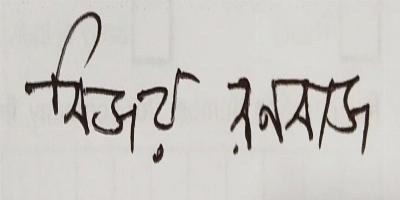 বিজয় রনবাজ